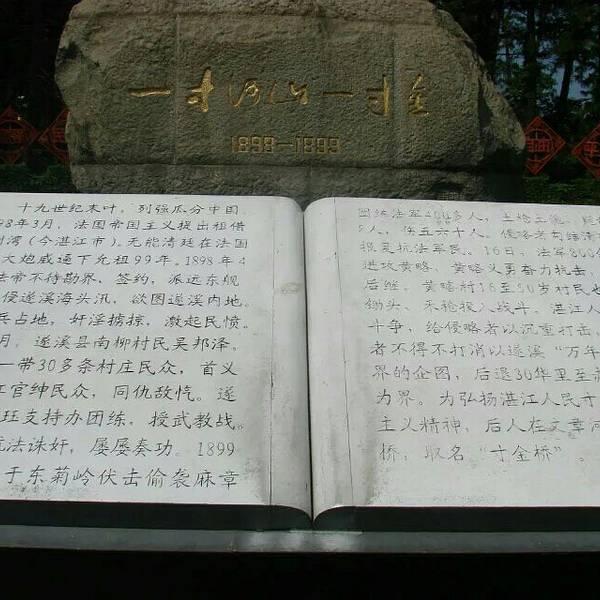 一寸河山一寸金
1898—1899
十九世纪末叶，列强瓜分中国
98年3月，法国帝国主义提出租借
湾（今湛江市）。无能清廷在法国
大炮威逼下允租99年。1898年4
法帝不待勘界、签约，派远东舰
侵遂溪海头汛，欲图遂溪内地。
兵占地，奸淫掳掠，激起民愤。
月，遂溪县南柳村民吴邦泽。
一带30多条村庄民众，首义
官绅民众，同仇敌忾。遂
珏支持办团练，授武教战。
抗法诛奸，屡屡奏功。1899
于东菊岭伏击偷袭麻章
团练法军400多人，
人，伤五六十人。侵略者勾结清
抗法军民。16日，法军800
进攻黄略，黄略义勇奋力抗击，
后继，黄略村16至50岁村民也
锄头、禾枪投入战斗。湛江人
斗争，给侵略者以沉重打击，
者不得不打消以遂溪“万年
界的企图，后退30华里至
为界。为弘扬湛江人民
主义精神，后人在文章河
桥，取名“寸金桥”。